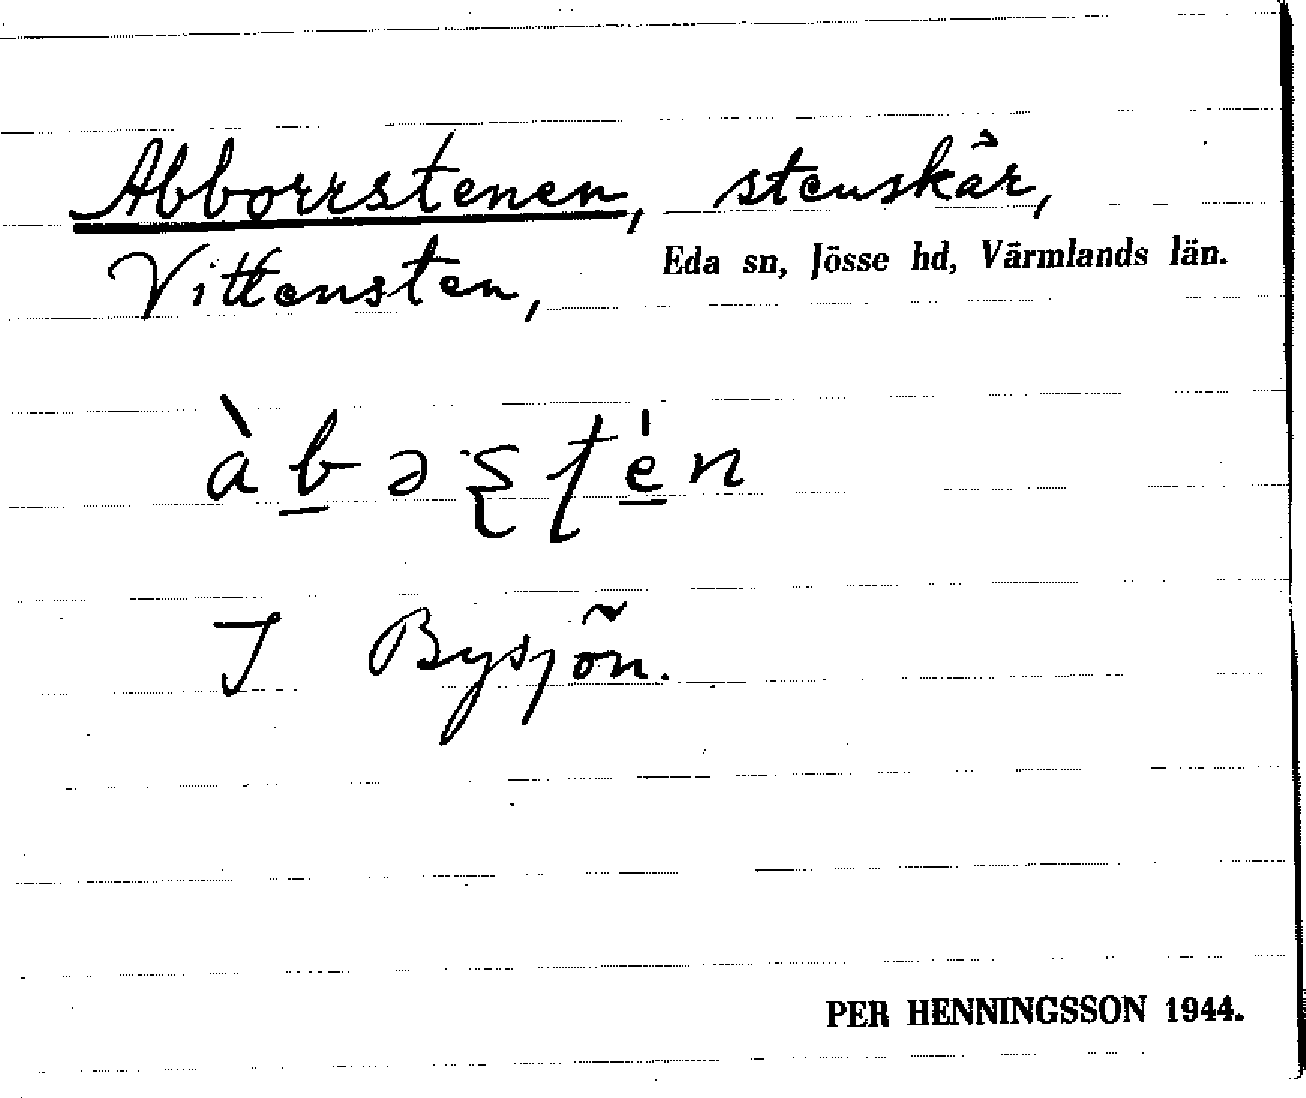 Abborrstenen, stenskär,
Vittensten, Eda sn, Jösse hd, Värmlands län.
àb̲əʂʈe̲̍n
I Bysjön.
PER HENNINGSSON 1944.